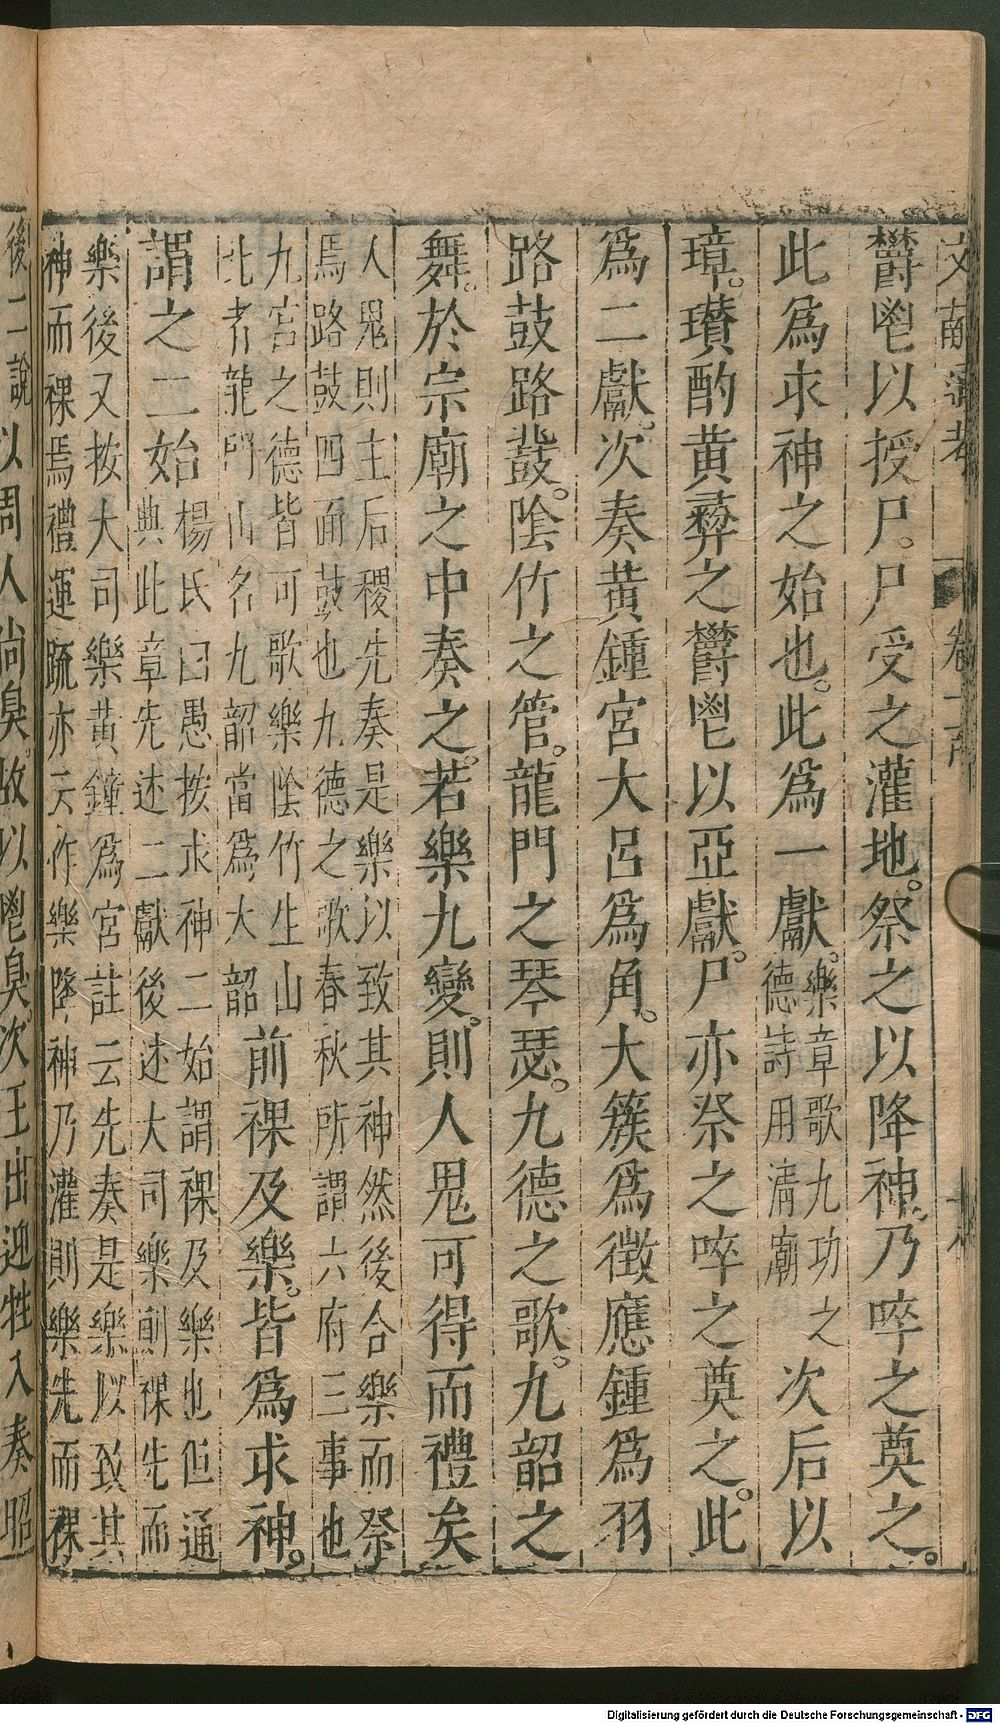 文獻通考
欝鬯以授尸。尸受之灌地。祭之以降神。乃啐之奠之。
此爲求神之始也。此爲一獻。樂章歌九功之德詩用清廟次后以
璋。瓚酌黄彝之欝鬯以亞獻。尸亦祭之啐之奠之。此
爲二獻。次奏黄鍾宮大呂爲角。大簇爲徵應鍾爲羽
路鼓路鼗。陰竹之管。龍門之琴瑟。九德之歌。九韶之
舞。於宗廟之中奏之。若樂九變。則人鬼可得而禮矣
人鬼則主后稷先奏是樂以致其神然後合樂而祭
焉路鼓四面鼓也九德之歌春秋所謂六府三事也
九宮之德皆可歌樂陰竹生山
北者龍門山名九韶當爲大韶前祼及樂。皆爲求神。
謂之二始楊氏曰愚按求神二始謂祼及樂也但通
典此章先述二獻後述大司樂則祼先而
樂後又按大司樂黄鐘爲宮註云先奏是樂以致其
神而祼焉禮運疏亦云作樂降神乃灌則樂先而祼
後二說以周人尚臭。故以鬯臭。次王出迎牲入奏昭
Digitalisierung gefördert durch die Deutsche Forschungsgemeinschaft - DFG